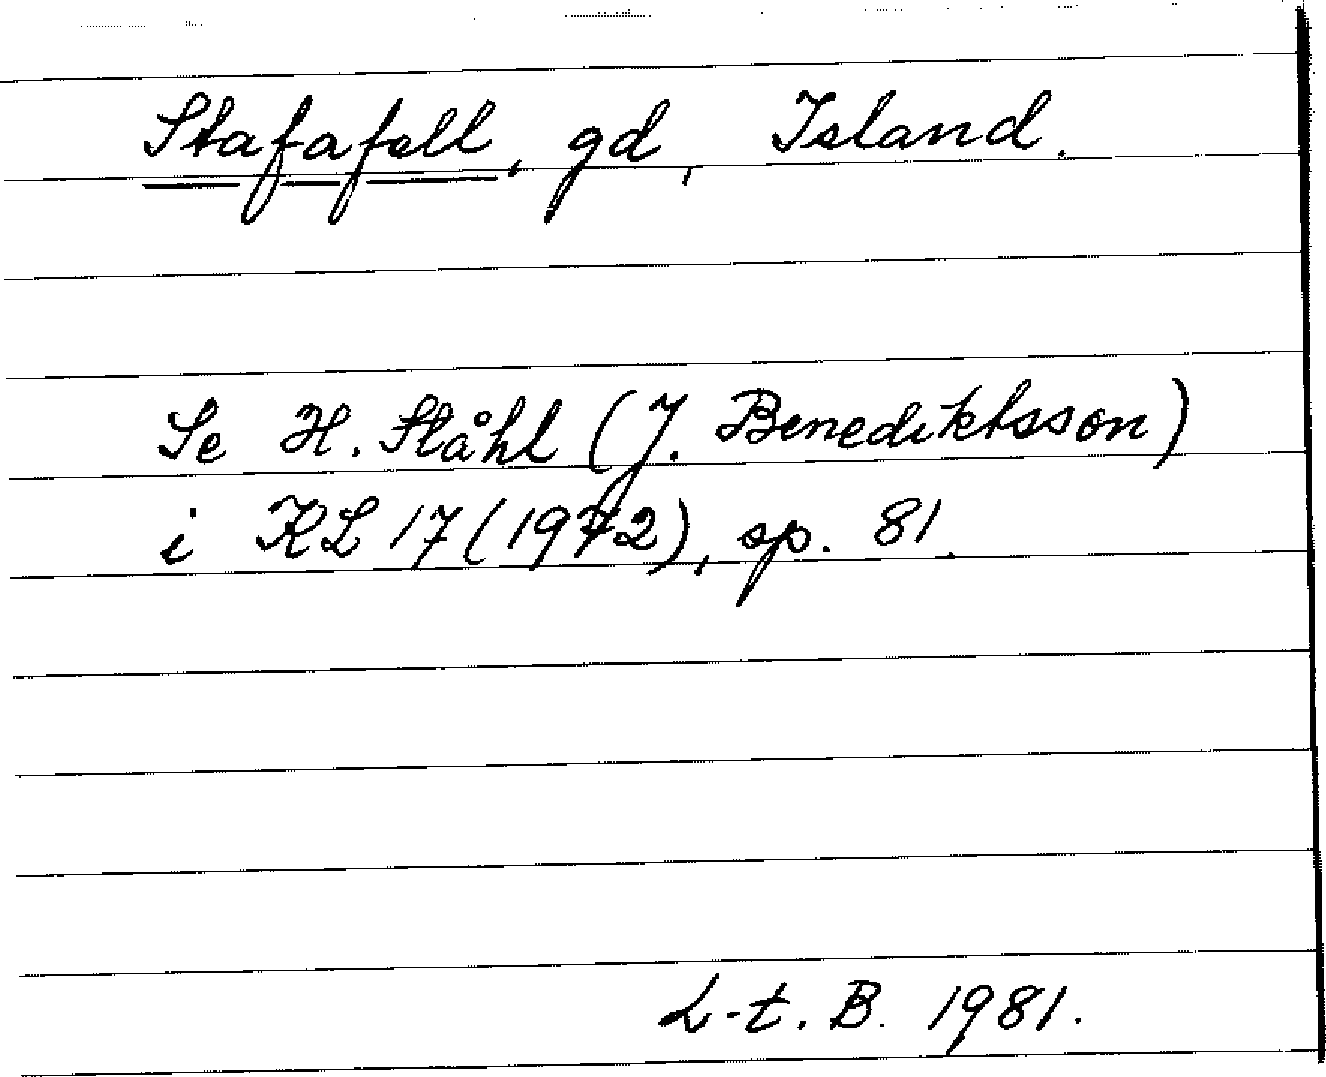 Stafafell, gd, Island.
Se H. Ståhl (J. Benediktsson)
i KL 17 (1972), sp. 81.
L-t. B. 1981.